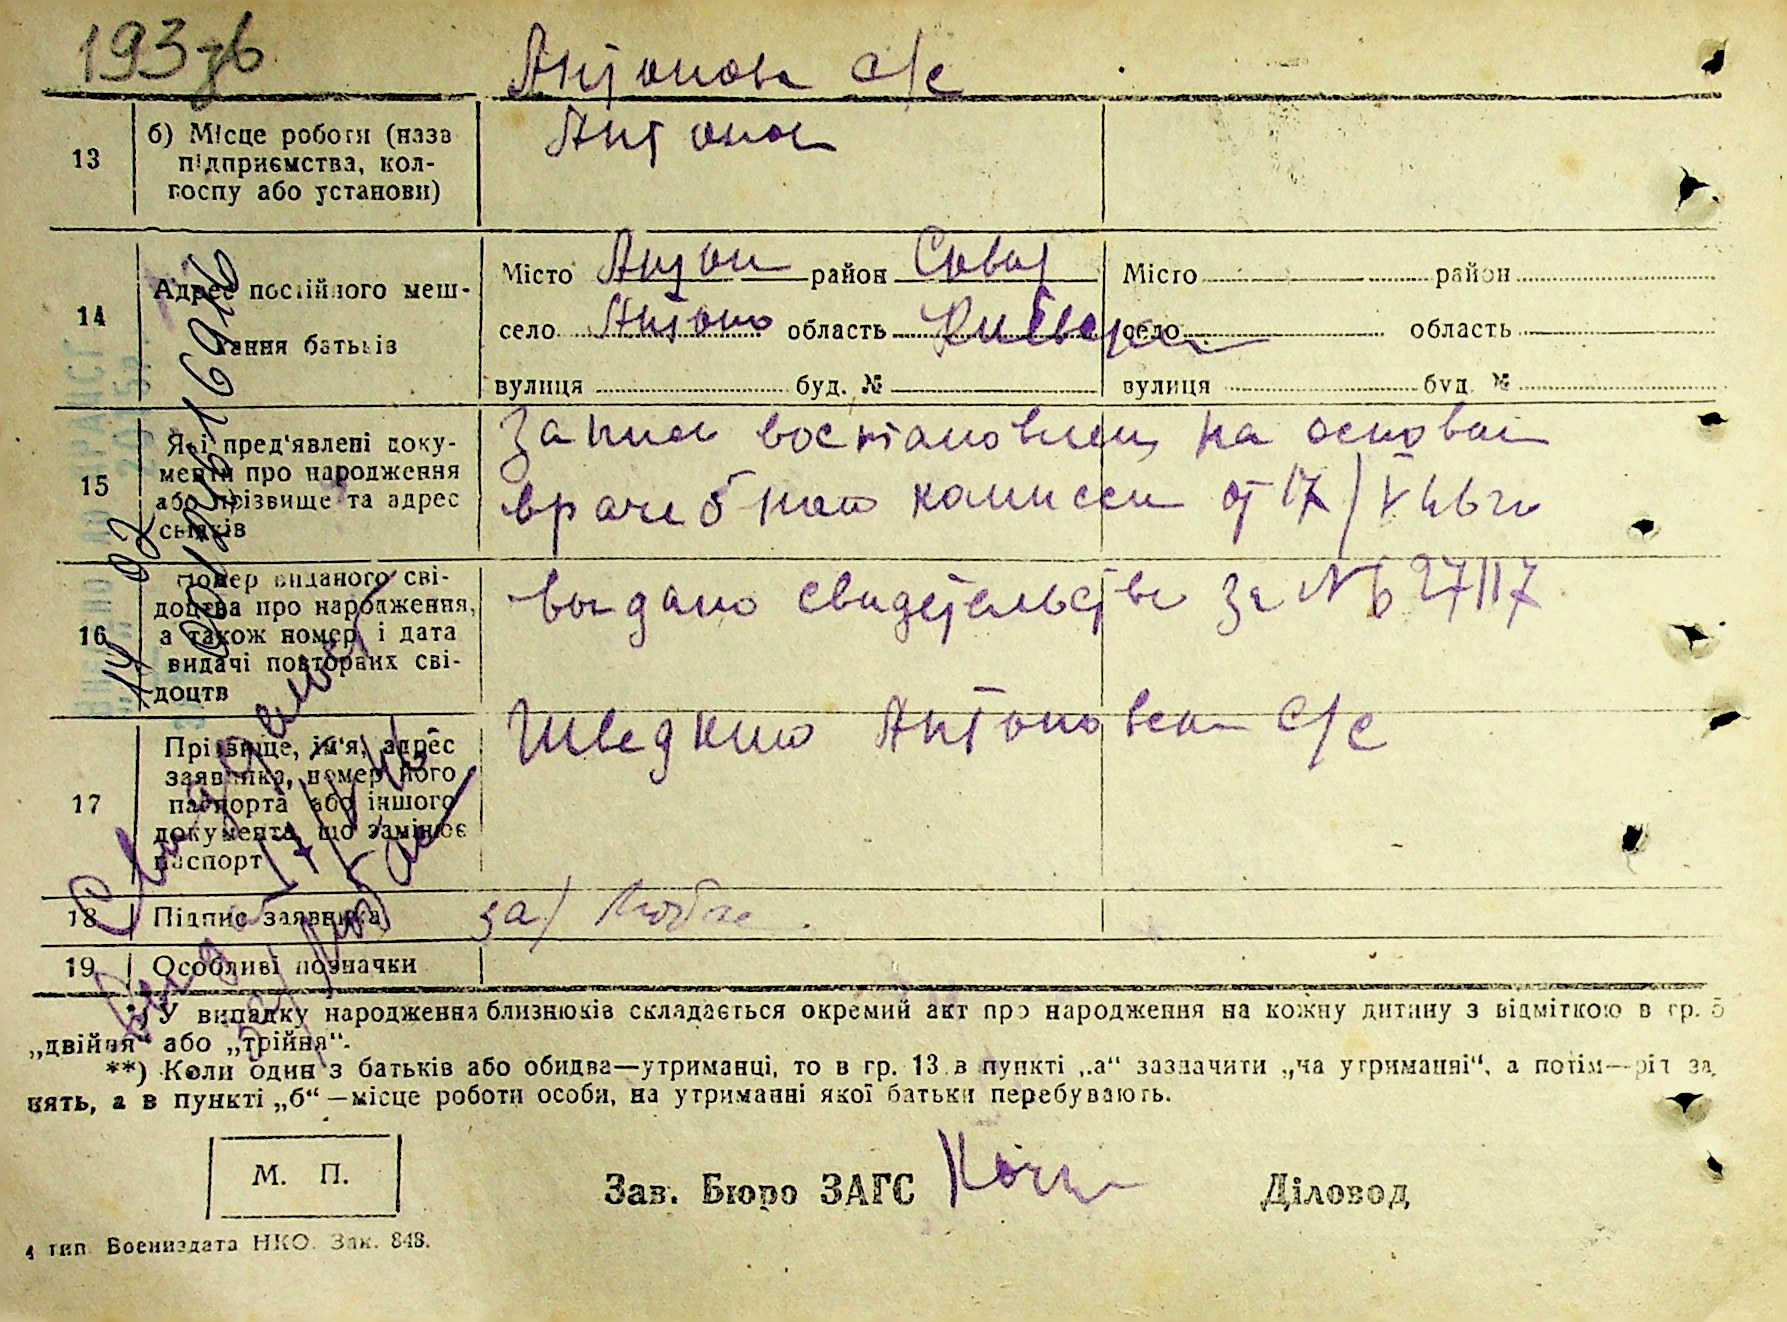 193зв
Антонов с/с
13 б) Місце роботи (назв підприємства, колгоспу або установи) Антонов
14 Адрес постійного мешкання батьків
Місто Антон район Сквир Місто район
село Антоно область Киевская село область
вулиця буд. № вулиця буд. №
15 Які пред'явлені документи про народження або прізвище та адрес свідків
Запись востановлен на основан
врачебной комиссеи от 17/V 46 г
16 Номер виданого свідоцтва про народження, а також номер і дата видачі повторних свідоцтв
выдано свидетельство за № 27117
17 Прізвище, ім'я, адрес заявника, номер його паспорта або іншого документа, що замінює паспорт
Шведкино Антоновски с/с
18 Підпис заявника за/
19 Особливі позначки
*) У випадку народження близнюків складається окремий акт про народження на кожну дитину з відміткою в гр. 5
„двійня" або „трійня".
**) Коли один з батьків або обидва—утриманці, то в гр. 13 в пункті „а" зазначити „на утриманні", а потім—рід за
нять, а в пункті „б"—місце роботи особи, на утриманні якої батьки перебувають.
М. П.
Зав. Бюро ЗАГС Діловод
4 тип. Воениздата НКО. Зак. 848.